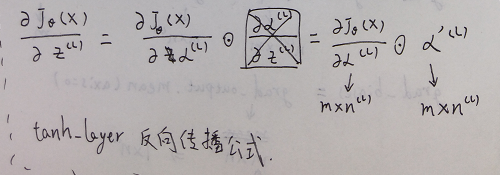 ∂J_θ(X)/∂z^(L) = ∂J_θ(X)/∂α^(L) ⊙ ∂α^(L)/∂z^(L) = ∂J_θ(X)/∂α^(L) ⊙ α'^(L)
↓ ↓
m×n^(L) m×n^(L)
tanh_layer 反向传播公式.